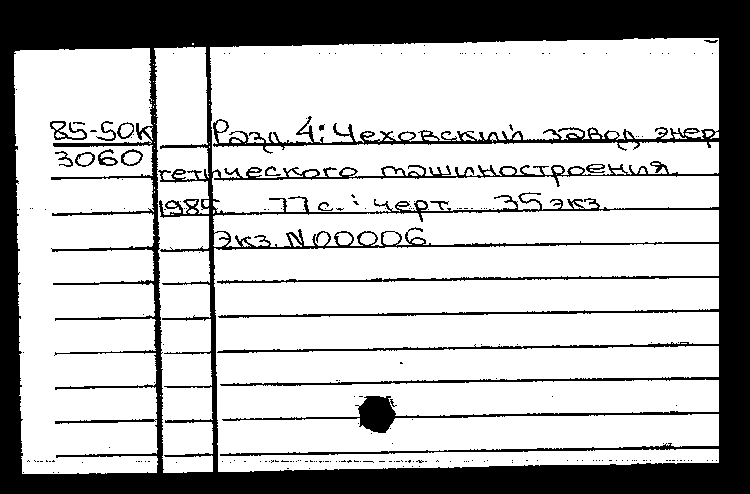 85-50к Разд. 4: Чеховский завод энер
3060 гетического машиностроения.
1985. 77 с.: черт. 35 экз.
Экз. N 00006.